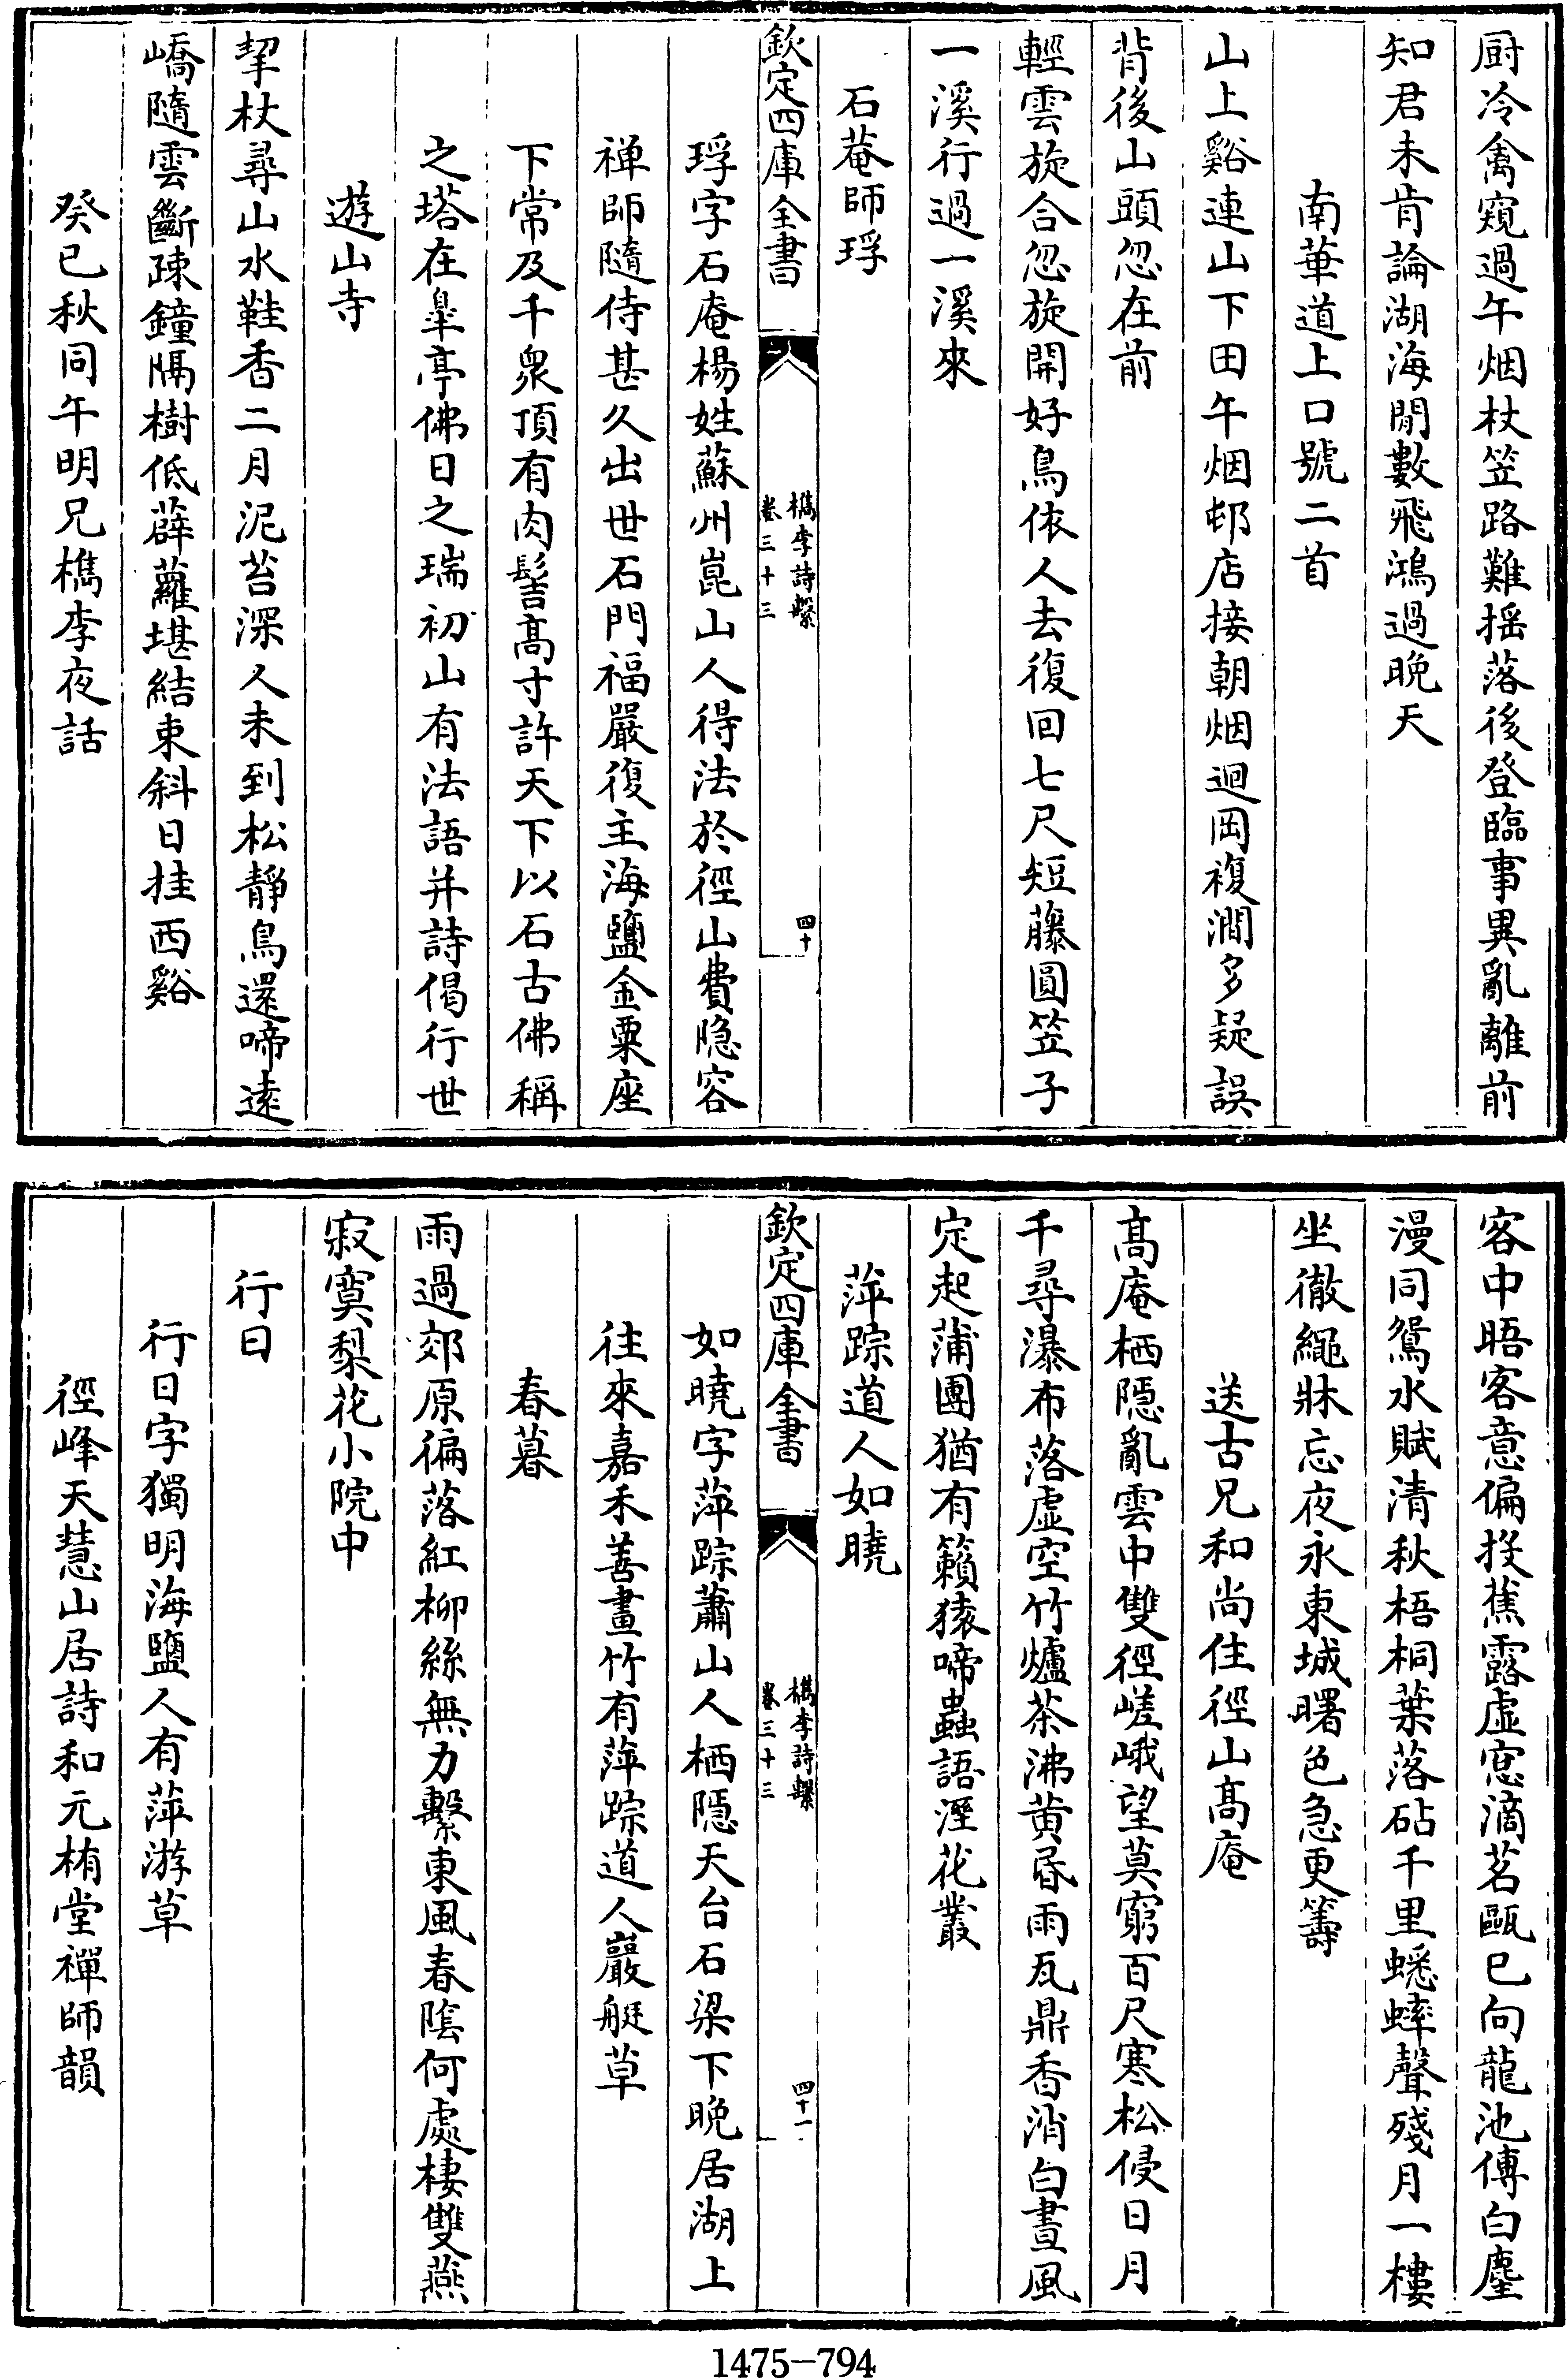 厨冷禽窺過午烟杖笠路難揺落後登臨事異亂離前
知君未肯論湖海閒數飛鴻過晚天
南華道上口號二首
山上谿連山下田午烟邨店接朝烟迴岡複澗多疑誤
背後山頭忽在前
輕雲旋合忽旋開好鳥依人去復回七尺短藤圓笠子
一溪行過一溪來
石菴師琈
欽定四庫全書
檇李詩繫
卷三十三
四十
琈字石庵楊姓蘇州崑山人得法於徑山費隐容
禅師隨侍甚久出世石門福嚴復主海鹽金粟座
下常及千衆頂有肉髻高寸許天下以石古佛稱
之塔在臯亭佛日之瑞初山有法語并詩偈行世
遊山寺
挈杖尋山水鞋香二月泥苔深人未到松靜鳥還啼逺
嶠隨雲斷疎鐘隔樹低薜蘿堪結束斜日挂西谿
癸巳秋同午明兄檇李夜話
客中晤客意偏投蕉露虚窻滴茗甌已向龍池傳白麈
漫同鴛水賦清秋梧桐葉落砧千里蟋蟀聲殘月一樓
坐徹繩牀忘夜永東城曙色急更籌
送古兄和尚住徑山髙庵
髙庵栖隱亂雲中雙徑嵯峨望莫窮百尺寒松侵日月
千尋瀑布落虚空竹爐茶沸黄昏雨瓦鼎香消白晝風
定起蒲團猶有籟猿啼蟲語溼花叢
萍踪道人如曉
欽定四庫全書
檇李詩繫
卷三十三
四十一
如曉字萍踪蕭山人栖隠天台石梁下晚居湖上
往來嘉禾善畫竹有萍踪道人巖艇草
春暮
雨過郊原徧落紅柳絲無力繫東風春隂何處棲雙燕
寂寞梨花小院中
行日
行日字獨明海鹽人有萍游草
徑峰天慧山居詩和元栯堂禪師韻
1475-794